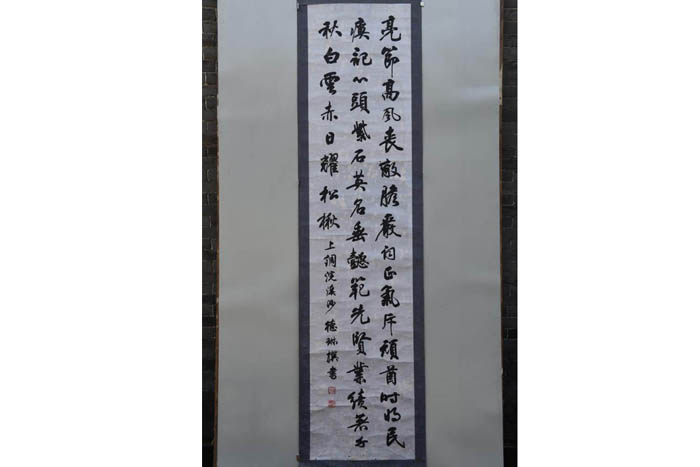 亮節高風喪敵膽嚴詞正氣斥頑酋時將民
瘼記心頭紫石英名垂懿範先賢業績著千
秋白雲赤日耀松楸 上調浣溪沙 德琳撰書